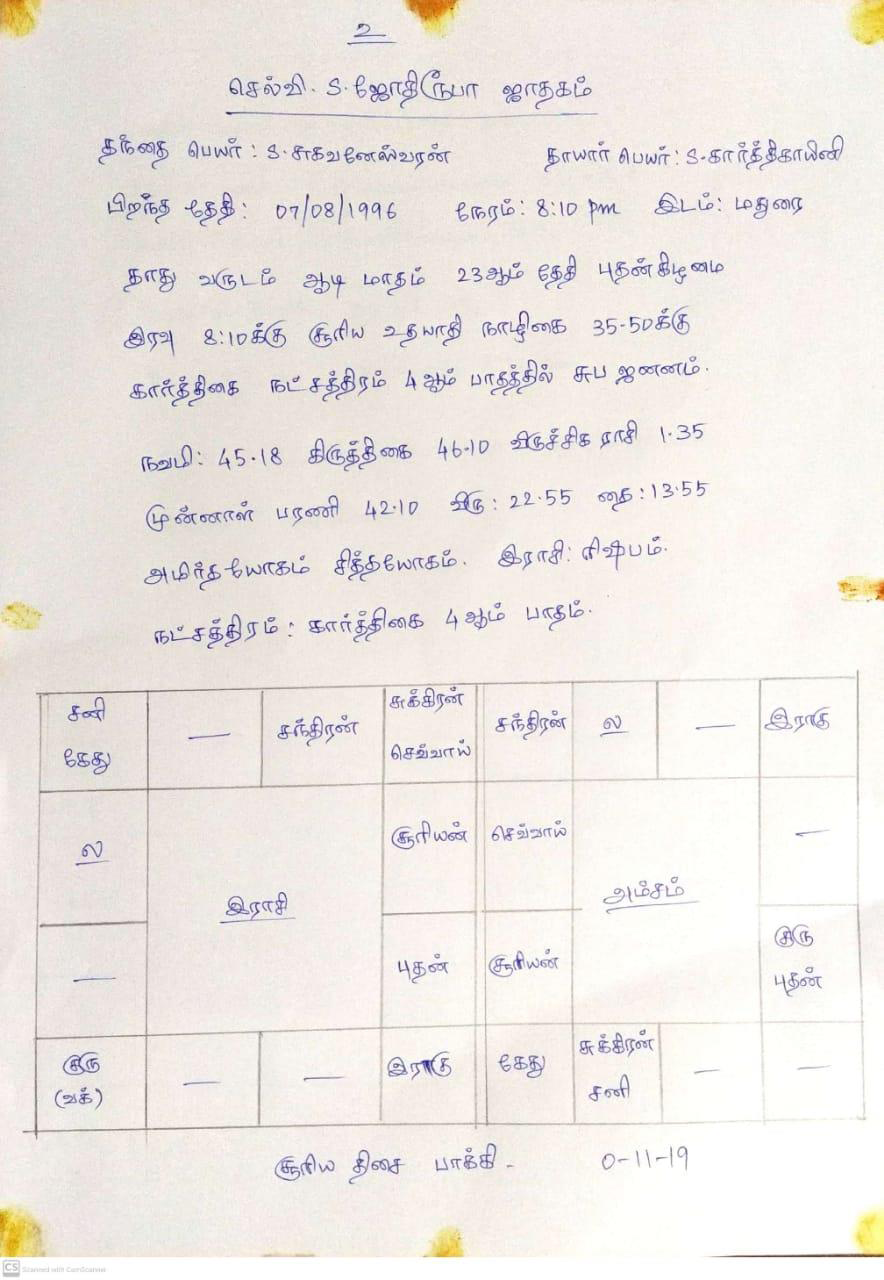 உ
செல்வி. S.ஜோதிரூபா ஜாதகம்
தந்தை பெயர் : S.சுகவனேஸ்வரன் தாயார் பெயர் : S.கார்த்திகாயினி
பிறந்த தேதி : 07/08/1996 நேரம் : 8:10 pm இடம் : மதுரை
தாது வருடம் ஆடி மாதம் 23ஆம் தேதி புதன்கிழமை
இரவு 8:10க்கு சூரிய உதயாதி நாழிகை 35-50க்கு
கார்த்திகை நட்சத்திரம் 4ஆம் பாதத்தில் சுப ஜனனம்.
நவமி : 45.18 கிருத்திகை 46.10 விருச்சிக ராசி 1.35
முன்னாள் பரணி 42.10 விரு : 22.55 தை : 13.55
அமிர்தயோகம் சித்தயோகம். இராசி : ரிஷபம்.
நட்சத்திரம் : கார்த்திகை 4ஆம் பாதம்.
சனி கேது — சந்திரன் சுக்கிரன் செவ்வாய்
ல இராசி சூரியன்
— புதன்
குரு (வக்) — — இராகு
சந்திரன் ல — இராகு
செவ்வாய் அம்சம் —
சூரியன் குரு புதன்
கேது சுக்கிரன் சனி — —
சூரிய திசை பாக்கி - 0-11-19
CS Scanned with CamScanner